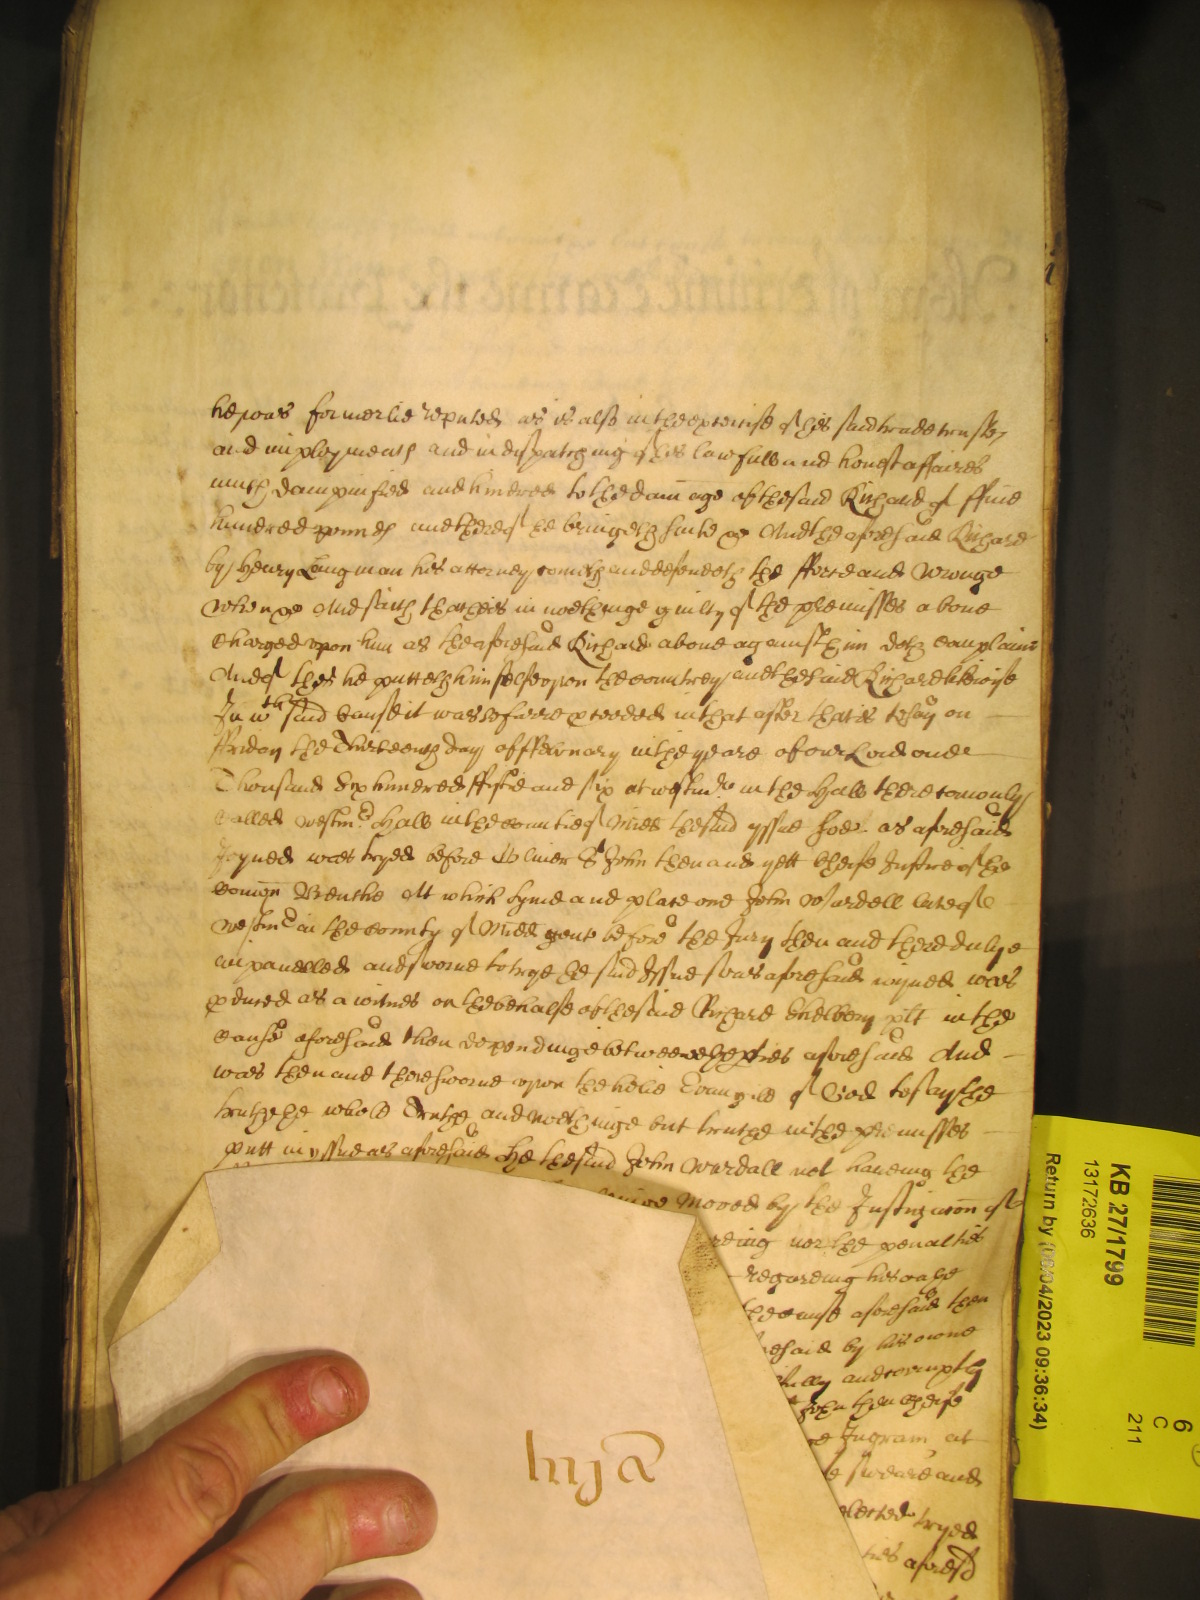 he was formerlie reputed as is also in the exercise of his said trade trusts
and imploymentes and in dispatching of his lawfull and honest affaires
much dampnified and hindred to the damage of the said Richard of ffive
hundred pounds and thereof he bringeth suite &c And the aforesaid Richard
by Henry Langman his attorney cometh and defendeth the fforce and wronge
when &c And saith that he is in nothinge guilty of the premisses above
charged upon him as the aforesaid Richard above against him doth complaine
And of this he putteth himselfe upon the countrey and the said Richard likewise
In wch said cause it was soe farre proceeded in that after that is to say on
ffriday the Thirteenth day of ffebruary in the yeare of our Lord one
Thousand Six hundred ffiftie and six at Westmr in the Hall there comonly
called Westmr Hall in the countie of Midd the said yssue soe as aforesaid
Joyned was tryed before Oliver St John then and yett Cheife Justice of the
comon Benche At which tyme and place one John Wardell late of
Westmr in the county of Midd gent before the Jury then and there dulye
impanelled and sworne to trye the said Issue soe as aforesaid ioyned was
pduced as a witnes on the behalfe of the said Richard plt in the
cause aforesaid then dependinge betweene the pties aforesaid And
was then and there sworne upon the holie Evangile of God to say the
truthe the whole Truthe and nothinge but truthe in the premisses
putt in yssue as aforesaid He the said John Wardall not haveing the
moved by the Instigacon of
nor the penalties
regarding his oathe
the cause aforesaid then
by his owne
and corruptly
John then cheife
Ingram at
sweare and
tryed
aforesd
KB 27/1799
13172636
Return by (06/04/2023 09:36:34)
6
C
211